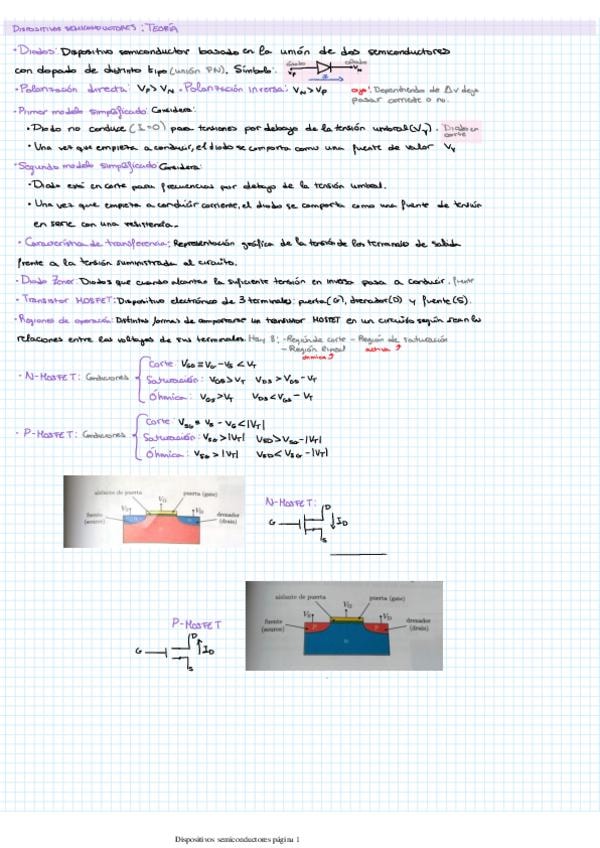 DISPOSITIVOS SEMICONDUCTORES: TEORÍA
• Diodos: Dispositivo semiconductor basado en la unión de dos semiconductores
con dopado de distinto tipo (unión PN). Símbolo: ánodo cátodo
VP VN
• Polarización directa: VP > VN. • Polarización inversa: VN > VP
ojo: Dependiendo de ΔV deja
pasar corriente o no.
• Primer modelo simplificado: Considera:
• Diodo no conduce (I=0) para tensiones por debajo de la tensión umbral (Vγ). Diodo en
corte
• Una vez que empieza a conducir, el diodo se comporta como una fuente de valor Vγ
• Segundo modelo simplificado: Considera:
• Diodo está en corte para frecuencias por debajo de la tensión umbral.
• Una vez que empieza a conducir corriente, el diodo se comporta como una fuente de tensión
en serie con una resistencia.
• Característica de transferencia: Representación gráfica de la tensión de los terminales de salida
frente a la tensión suministrada al circuito.
• Diodo Zener: Diodos que cuando alcanzan la suficiente tensión en inversa pasa a conducir.
• Transistor MOSFET: Dispositivo electrónico de 3 terminales: puerta(G), drenador(D) y fuente(S).
• Regiones de operación: Distintas formas de comportarse un transistor MOSFET en un circuito según sean las
relaciones entre los voltajes de sus terminales. Hay 3: - Región de corte - Región de saturación
- Región lineal activa
óhmica
• N-MOSFET: Condiciones
Corte: VGS = VG - VS < VT
Saturación: VGS > VT VDS > VGS - VT
Óhmica: VGS > VT VDS < VGS - VT
• P-MOSFET: Condiciones
Corte: VSG = VS - VG < |VT|
Saturación: VSG > |VT| VSD > VSG - |VT|
Óhmica: VSG > |VT| VSD < VSG - |VT|
aislante de puerta puerta (gate)
VG
VS VD
fuente
(source)
drenador
(drain)
n n
P
N-MOSFET:
D
G ID
S
P-MOSFET
D
G ID
S
aislante de puerta puerta (gate)
VG
VS VD
fuente
(source)
drenador
(drain)
P P
n
Dispositivos semiconductores página 1